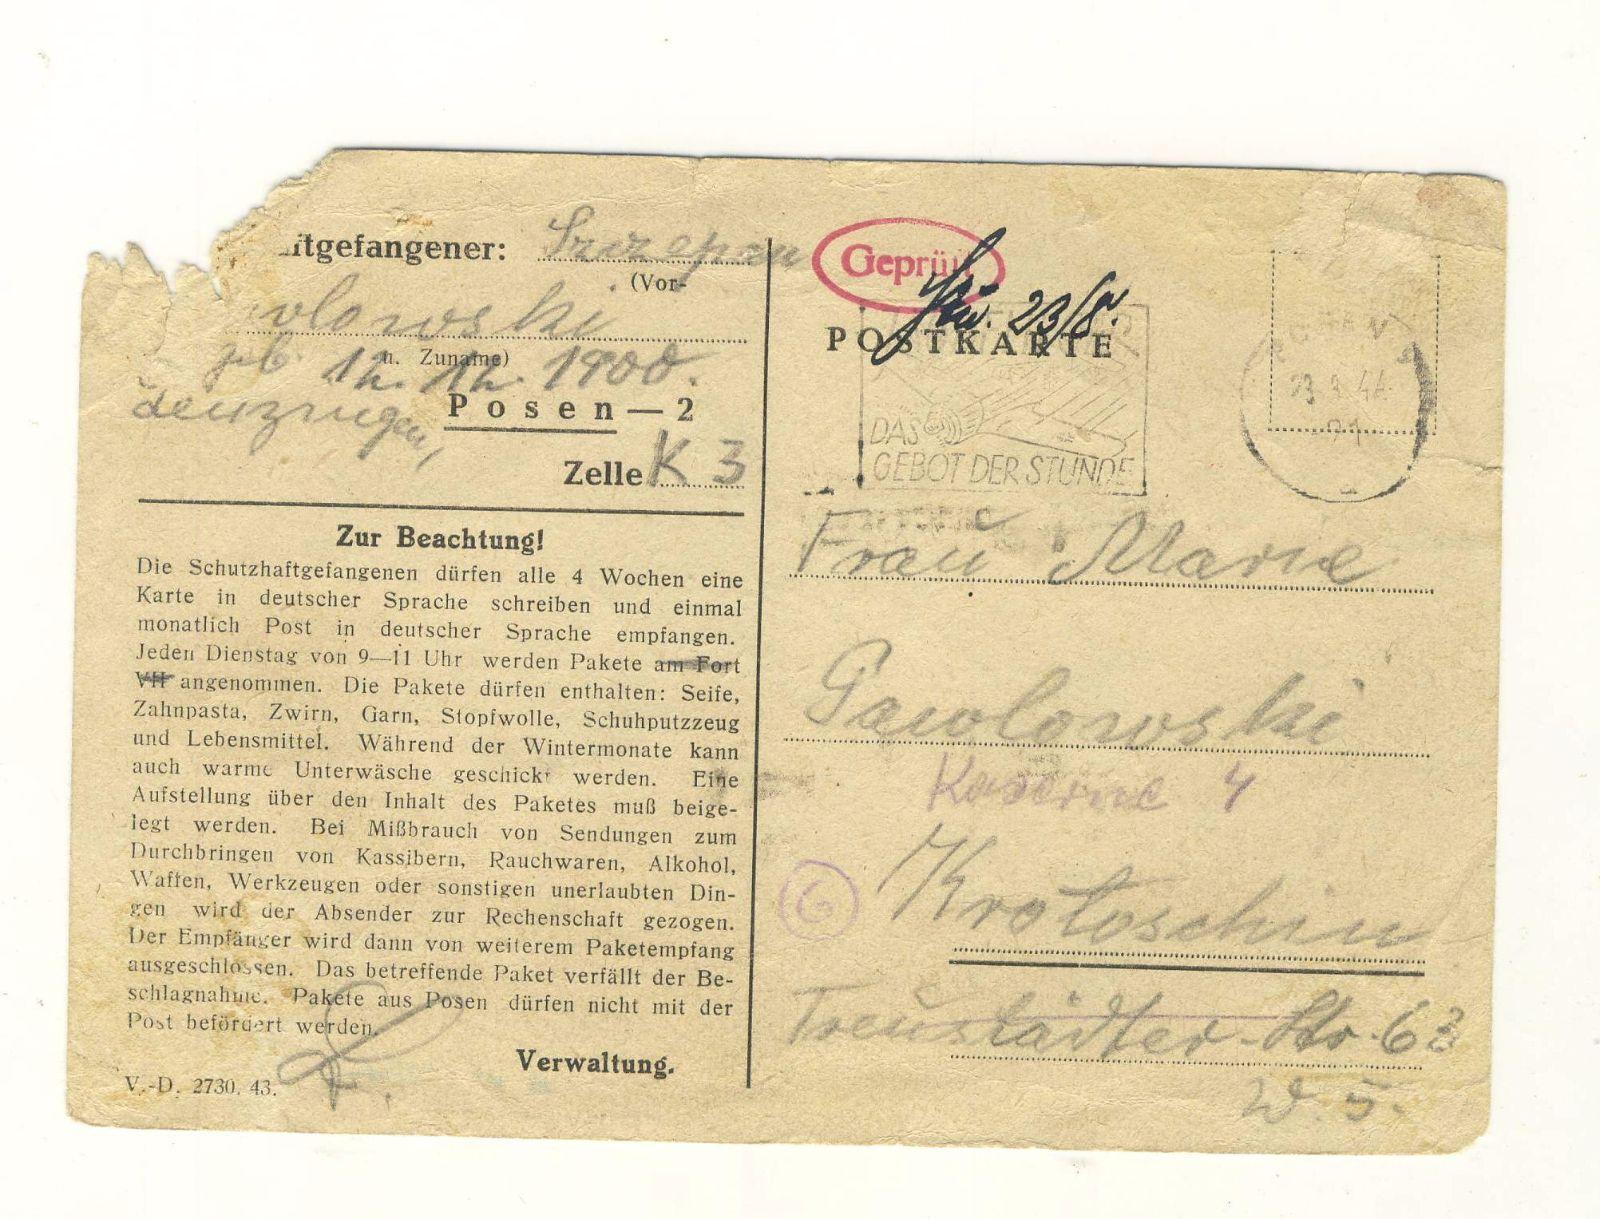 ftgefangener: Szczepan
(Vor-
wlowski
u. Zuname)
geb 12. 12. 1900.
Posen—2
Zelle K 3
Zur Beachtung!
Die Schutzhaftgefangenen dürfen alle 4 Wochen eine
Karte in deutscher Sprache schreiben und einmal
monatlich Post in deutscher Sprache empfangen.
Jeden Dienstag von 9—11 Uhr werden Pakete am Fort
VII angenommen. Die Pakete dürfen enthalten: Seife,
Zahnpasta, Zwirn, Garn, Stopfwolle, Schuhputzzeug
und Lebensmittel. Während der Wintermonate kann
auch warme Unterwäsche geschickt werden. Eine
Aufstellung über den Inhalt des Paketes muß beige-
legt werden. Bei Mißbrauch von Sendungen zum
Durchbringen von Kassibern, Rauchwaren, Alkohol,
Waffen, Werkzeugen oder sonstigen unerlaubten Din-
gen wird der Absender zur Rechenschaft gezogen.
Der Empfänger wird dann von weiterem Paketempfang
ausgeschlossen. Das betreffende Paket verfällt der Be-
schlagnahme. Pakete aus Posen dürfen nicht mit der
Post befördert werden.
Verwaltung.
V.-D. 2730. 43.
Geprüft
23/8.
POSTKARTE
DAS
GEBOT DER STUNDE
Frau Marie
Pawlowski
Kaserne 4
G
Krotoschin
Treustädter-Str. 63